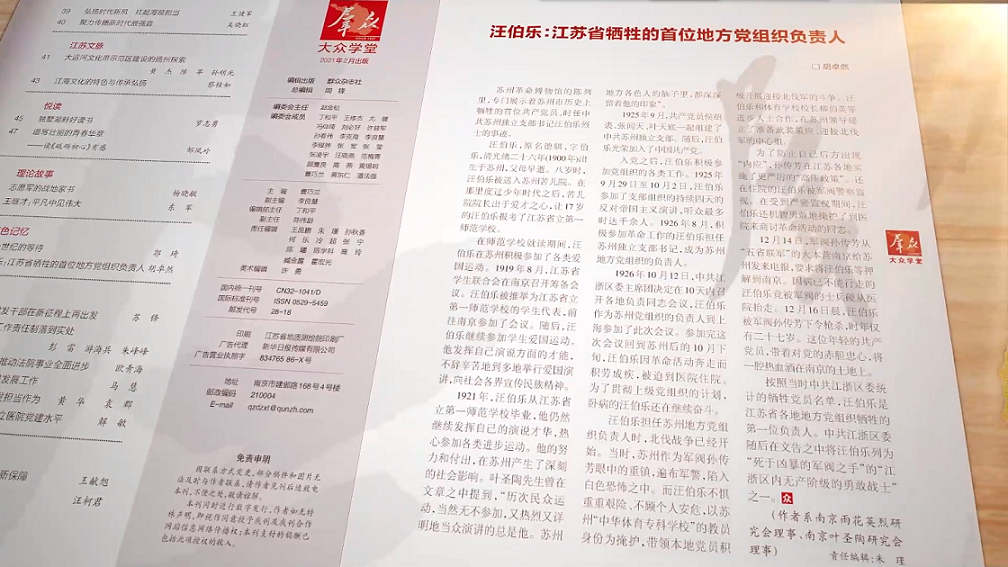 39 弘扬时代新风 扛起海院担当 王健军
40 聚力传播新时代好强音 吴晓红
江苏文脉
41 大运河文化带示范区建设的扬州探索
黄杰 陈苹 孙明光
43 江海文化的特色与传承弘扬 蔡桂如
悦读
45 独墅湖畔好读书 罗志勇
47 谱写壮丽的青春华章
——读《破邪初心》有感 邹凤岭
理论故事
志愿军的战地家书 杨晓敏
王继才:平凡中见伟大 东军
色记忆
世纪的等待 郭琦
乐:江苏省牺牲的首位地方党组织负责人 胡卓然
发干部在新征程上再出发 苏锋
工作责任制落到实处
彭雷 游海兵 朱峰峰
推动法院事业全面进步 欧青海
发展工作 马慧
担当作为 黄华 袁郡
立医院党建水平 解敏
新保障 王献旭
汪柯君
群众
大众学堂
2021年2月出版
编辑出版 群众杂志社
总编辑 周锋
编委会主任 赵金松
编委会成员 丁和平 王修杰 尤健
主编 曹巧兰
副主编 李良慧
编辑部主任 丁和平
副主任 陈伟龄
责任编辑 王昆鹏 朱瑾 孙秋香
何乐 冷超 张宁
陈曦 陈学科 高玲
臧金露 霍宏光
美术编辑 许勇
国内统一刊号 CN32-1041/D
国际标准刊号 ISSN 0529-5459
邮发代号 28-18
印刷 江苏省地质测绘院印刷厂
广告代理 新华日报传媒有限公司
广告营业执照字 834765 86-X号
地址 南京市建邺路168号4号楼
邮政编码 210004
E-mail qzdzxt@qunzh.com
免责申明
因联系方式变更,部分稿件和图片无
法及时与作者联系,请作者见刊后速致电
本刊,不便之处,敬请谅解。
本刊同时进行数字发行,作者如无特
殊声明,即视作同意授予我刊及我刊合作
网站信息网络传播权;本刊支付的稿酬已
包括此项授权的收入。
汪伯乐:江苏省牺牲的首位地方党组织负责人
□ 胡卓然
苏州革命博物馆的陈列
里,专门展示着苏州市历史上
牺牲的首位共产党员,时任中
共苏州独立支部书记汪伯乐烈
士的事迹。
汪伯乐,原名德骐,字伯
乐,清光绪二十六年(1900年)出
生于苏州,父母早逝。八岁时,
汪伯乐被送入苏州苦儿院。在
那里度过少年时代之后,苦儿
院院长出于爱才之心,让17岁
的汪伯乐报考了江苏省立第一
师范学校。
在师范学校就读期间,汪
伯乐在苏州积极参加了各类爱
国运动。1919年8月,江苏省
学生联合会在南京召开筹备会
议。汪伯乐被推举为江苏省立
第一师范学校的学生代表,前
往南京参加了会议。随后,汪
伯乐继续参加学生爱国运动。
他发挥自己演说方面的才能,
不辞辛苦地到多地举行爱国演
讲,向社会各界宣传民族精神。
1921年,汪伯乐从江苏省
立第一师范学校毕业,他仍然
继续发挥自己的演说才华,热
心参加各类进步运动。他的努
力和付出,在苏州产生了深刻
的社会影响。叶圣陶先生曾在
文章之中提到,“历次民众运
动,当然无不参加,又热烈又详
明地当众演讲的总是他。苏州
地方各色人的脑子里,都深深
留着他的印象”。
1925年9月,共产党员侯绍
裘、张闻天、叶天底一起组建了
中共苏州独立支部。随后,汪伯
乐光荣加入了中国共产党。
入党之后,汪伯乐积极参
加党组织的各类工作。1925年
9月29日至10月2日,汪伯乐
参加了支部组织的持续四天的
反对帝国主义演讲,听众最多
时达千余人。1926年8月,积
极参加革命工作的汪伯乐担任
苏州独立支部书记,成为苏州
地方党组织的负责人。
1926年10月12日,中共江
浙区委主席团决定在10天内召
开各地负责同志会议,汪伯乐
作为苏州党组织的负责人到上
海参加了此次会议。参加完这
次会议回到苏州后的10月下
旬,汪伯乐因革命活动奔走而
积劳成疾,被迫到医院住院。
为了贯彻上级党组织的计划,
卧病的汪伯乐还在继续奋斗。
汪伯乐担任苏州地方党组
织负责人时,北伐战争已经开
始。当时,苏州作为军阀孙传
芳眼中的重镇,遍布军警,陷入
白色恐怖之中。而汪伯乐不惧
重重艰险、不顾个人安危,以苏
州“中华体育专科学校”的教员
身份为掩护,带领本地党员积
极开展迎接北伐军的斗争。汪
伯乐和体育学校校长柳伯英等
进步人士合作,在苏州领导建
立了准备武装策应、迎接北伐
军的中心组。
为了防止自己后方出现
“内应”,孙传芳在江苏各地实
施了更严厉的“高压政策”。还
在住院的汪伯乐被军阀警察监
视。在受到严密监视期间,汪
伯乐还机智勇敢地掩护了到医
院来商讨革命活动的同志。
12月14日,军阀孙传芳从
“五省联军”的大本营南京给苏
州发来电报,要求将汪伯乐等押
解到南京。因病已不能行走的
汪伯乐竟被军阀的士兵硬从医
院抬走。12月16日晨,汪伯乐
被军阀孙传芳下令枪杀,时年仅
有二十七岁。这位年轻的共产
党员,带着对党的赤胆忠心,将
一腔热血洒在南京的土地上。
按照当时中共江浙区委统
计的牺牲党员名单,汪伯乐是
江苏省各地地方党组织牺牲的
第一位负责人。中共江浙区委
随后在文告之中将汪伯乐列为
“死于凶暴的军阀之手”的“江
浙区内无产阶级的勇敢战士”
之一。众
(作者系南京雨花英烈研
究会理事、南京叶圣陶研究会
理事)
责任编辑:朱瑾
群众
大众学堂